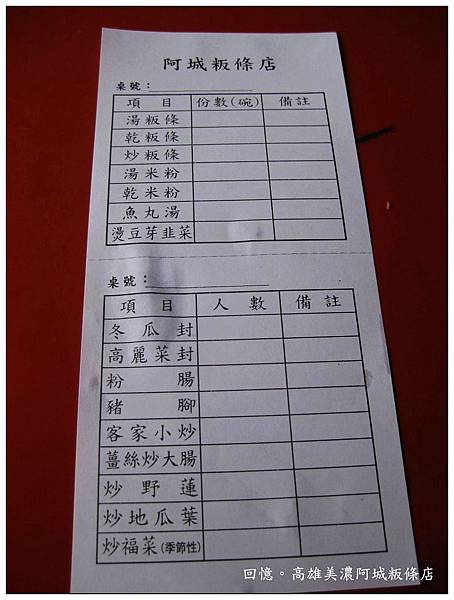 阿城粄條店
桌號：
項 目 份數(碗) 備註
湯粄條
乾粄條
炒粄條
湯米粉
乾米粉
魚丸湯
燙豆芽韭菜
桌號：
項 目 人 數 備 註
冬瓜封
高麗菜封
粉腸
豬腳
客家小炒
薑絲炒大腸
炒野蓮
炒地瓜葉
炒福菜(季節性)
回憶。高雄美濃阿城粄條店